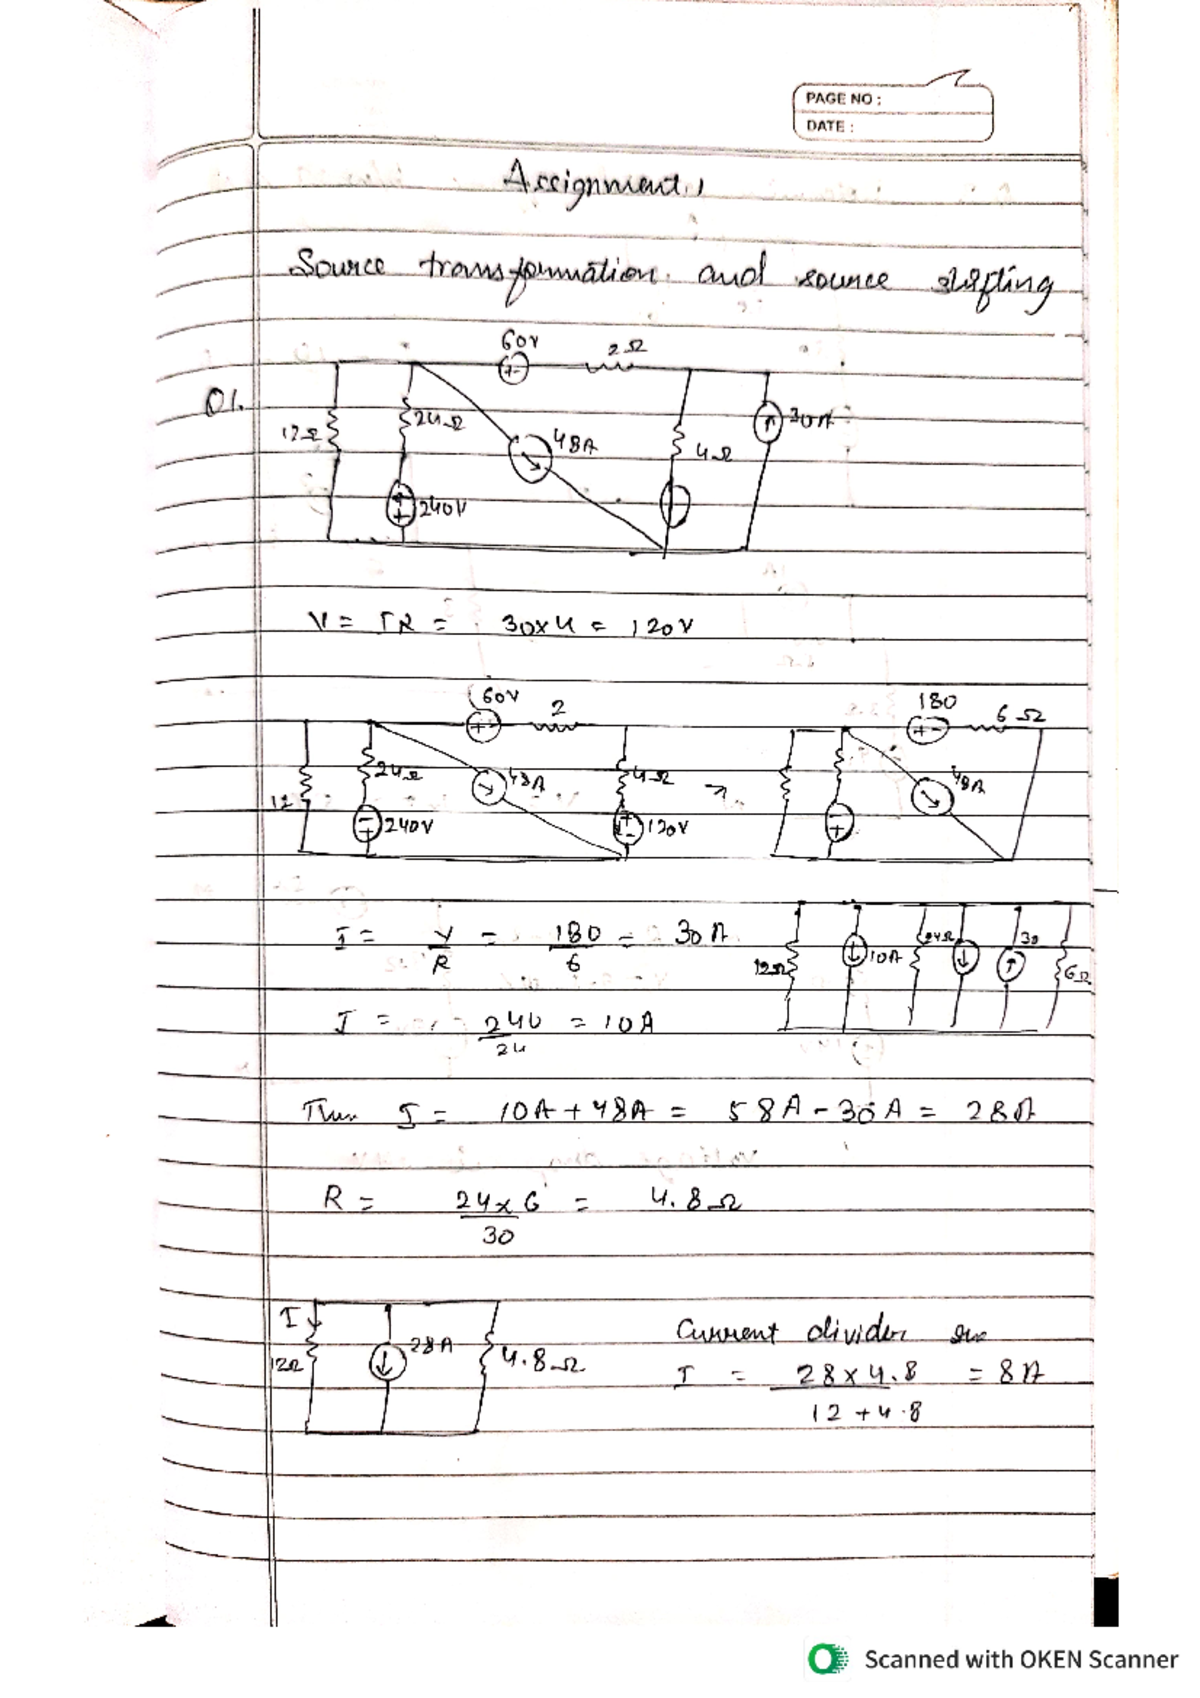 PAGE NO :
DATE :
Assignment 1
Source transformation and source shifting
Q1.
60V 2Ω
12Ω 24Ω 48A 4Ω 30A
240V
V = IR = 30x4 = 120V
60V 2 180 6Ω
12 24Ω 48A 4Ω → 48A
240V 120V
I = V/R = 180/6 = 30A
12Ω 10A 24Ω 30 6Ω
I = 240/24 = 10A
Thus I = 10A + 48A = 58A - 30A = 28A
R = 24x6/30 = 4.8Ω
I
12Ω 28A 4.8Ω
Current divider
I = 28x4.8/12+4.8 = 8A
Scanned with OKEN Scanner